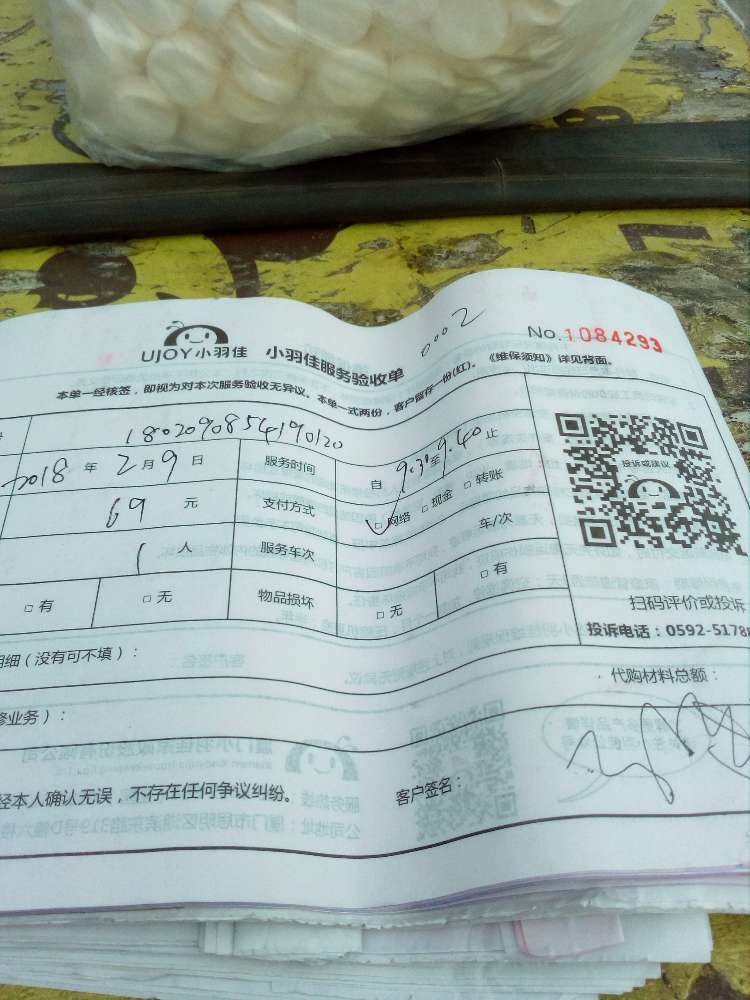 0002
No.1084293
UJOY小羽佳 小羽佳服务验收单
本单一经核签，即视为对本次服务验收无异议。本单一式两份，客户留存一份(红)。《维保须知》详见背面。
1802090854190120
2018年2月9日 服务时间 自9.30至9.40止
69元 支付方式 □网络 □现金 □转账
1人 服务车次 车/次
□有 □无 物品损坏 □无 □有
投诉或建议
扫码评价或投诉
投诉电话：0592-5178
明细（没有可不填）：
代购材料总额：
修业务）：
经本人确认无误，不存在任何争议纠纷。 客户签名：